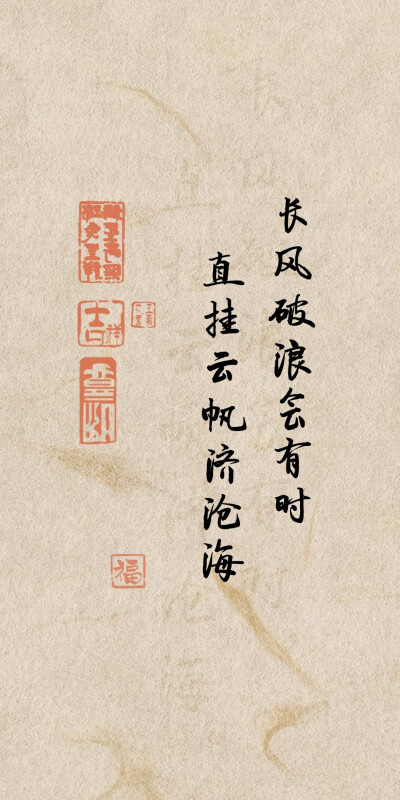 长风破浪会有时
直挂云帆济沧海
吉祥
福